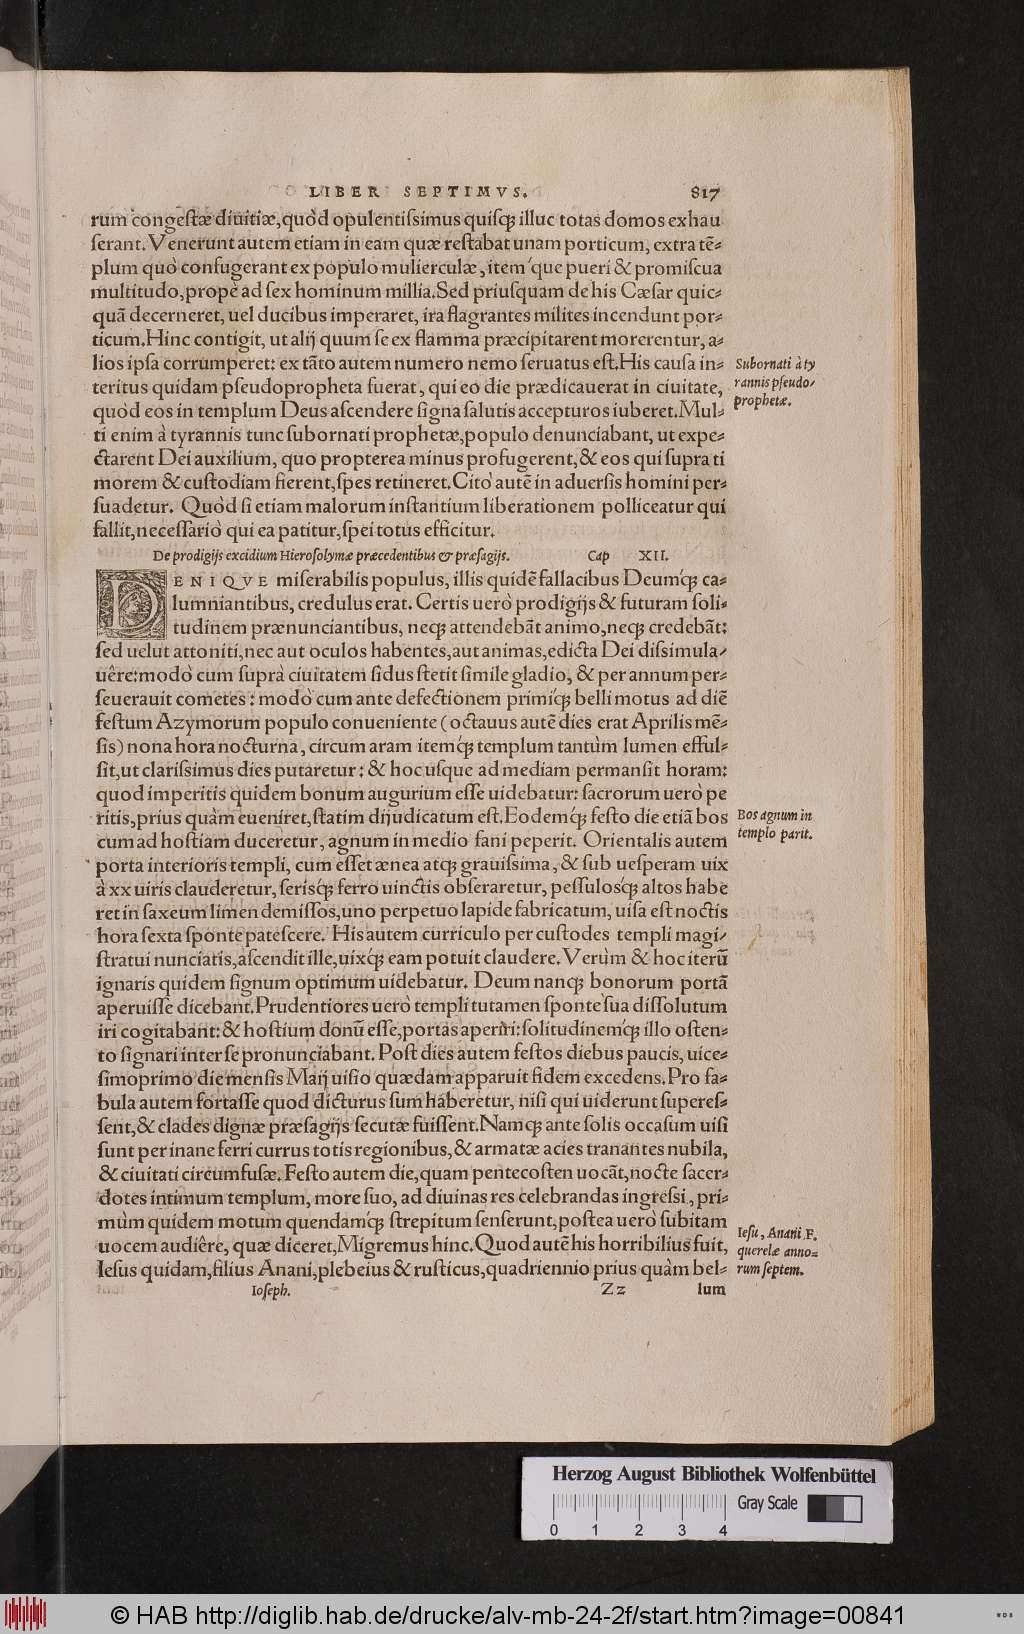 LIBER SEPTIMVS. 817
rum congestæ diuitiæ, quòd opulentissimus quisq; illuc totas domos exhau
serant. Venerunt autem etiam in eam quæ restabat unam porticum, extra tē-
plum quò confugerant ex populo mulierculæ, item'que pueri & promiscua
multitudo, propè ad sex hominum millia. Sed priusquam de his Cæsar quic-
quā decerneret, uel ducibus imperaret, ira flagrantes milites incendunt por-
ticum. Hinc contigit, ut alij quum se ex flamma præcipitarent morerentur, a-
lios ipsa corrumperet: ex tāto autem numero nemo seruatus est. His causa in-
teritus quidam pseudopropheta fuerat, qui eo die prædicauerat in ciuitate,
quòd eos in templum Deus ascendere signa salutis accepturos iuberet. Mul-
ti enim à tyrannis tunc subornati prophetæ, populo denunciabant, ut expe-
ctarent Dei auxilium, quo propterea minus profugerent, & eos qui supra ti
morem & custodiam fierent, spes retineret. Citò autē in aduersis homini per-
suadetur. Quòd si etiam malorum instantium liberationem polliceatur qui
fallit, necessariò qui ea patitur, spei totus efficitur.
Subornati à ty
rannis pseudo-
prophetæ.
De prodigijs excidium Hierosolymæ præcedentibus & præsagijs. Cap XII.
DENIQVE miserabilis populus, illis quidē fallacibus Deumq́; ca-
lumniantibus, credulus erat. Certis uerò prodigijs & futuram soli-
tudinem prænunciantibus, neq; attendebāt animo, neq; credebāt:
sed uelut attoniti, nec aut oculos habentes, aut animas, edicta Dei dissimula-
uêre: modò cum suprà ciuitatem sidus stetit simile gladio, & per annum per-
seuerauit cometes: modò cum ante defectionem primiq́; belli motus ad diē
festum Azymorum populo conueniente (octauus autē dies erat Aprilis mē-
sis) nona hora nocturna, circum aram itemq́; templum tantùm lumen efful-
sit, ut clarissimus dies putaretur: & hoc usque ad mediam permansit horam:
quod imperitis quidem bonum augurium esse uidebatur: sacrorum uerò pe
ritis, prius quàm eueniret, statim dijudicatum est. Eodemq́; festo die etiā bos
cum ad hostiam duceretur, agnum in medio fani peperit. Orientalis autem
porta interioris templi, cum esset ænea atq; grauissima, & sub uesperam uix
à xx uiris clauderetur, serisq́; ferro uinctis obseraretur, pessulosq́; altos habe
ret in saxeum limen demissos, uno perpetuo lapide fabricatum, uisa est noctis
hora sexta sponte patescere. His autem curriculo per custodes templi magi-
stratui nunciatis, ascendit ille, uixq́; eam potuit claudere. Verùm & hoc iterū
ignaris quidem signum optimum uidebatur. Deum nanq; bonorum portā
aperuisse dicebant. Prudentiores uerò templi tutamen sponte sua dissolutum
iri cogitabant: & hostium donū esse, portas aperiri: solitudinemq́; illo osten-
to signari inter se pronunciabant. Post dies autem festos diebus paucis, uice-
simoprimo die mensis Maij uisio quædam apparuit fidem excedens. Pro fa-
bula autem fortasse quod dicturus sum haberetur, nisi qui uiderunt superes-
sent, & clades dignæ præsagijs secutæ fuissent. Namq; ante solis occasum uisi
sunt per inane ferri currus totis regionibus, & armatæ acies tranantes nubila,
& ciuitati circumfusæ. Festo autem die, quam pentecosten uocāt, nocte sacer-
dotes intimum templum, more suo, ad diuinas res celebrandas ingressi, pri-
mùm quidem motum quendamq́; strepitum senserunt, postea uerò subitam
uocem audiêre, quæ diceret, Migremus hinc. Quod autē his horribilius fuit,
Iesus quidam, filius Anani, plebeius & rusticus, quadriennio prius quàm bel-
Bos agnum in
templo parit.
Iesu, Anani F.
querelæ anno-
rum septem.
Ioseph. Zz lum
Herzog August Bibliothek Wolfenbüttel
Gray Scale
0 1 2 3 4
© HAB http://diglib.hab.de/drucke/alv-mb-24-2f/start.htm?image=00841